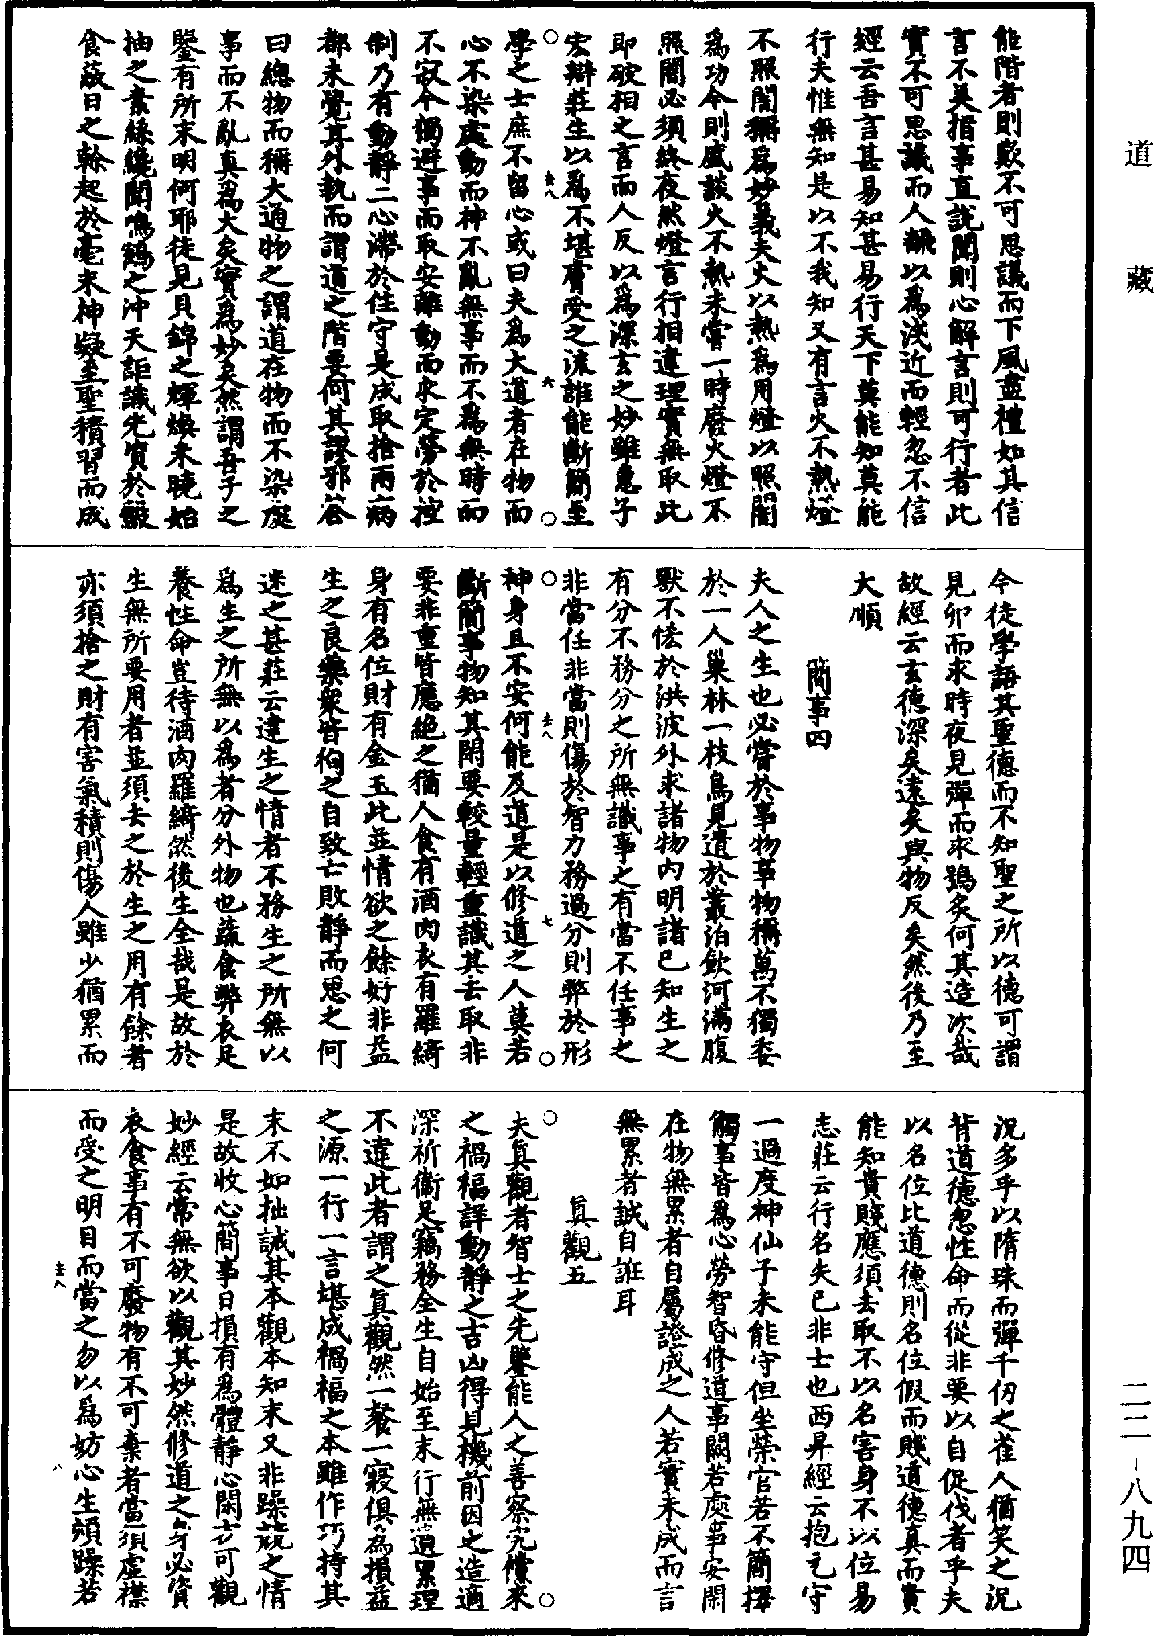 道藏
能階者則歎不可思議而下風盡禮如其信
言不美指事直說聞則心解言則可行者此
實不可思議而人翻以爲淺近而輕忽不信
經云吾言甚易知甚易行天下莫能知莫能
行夫惟無知是以不我知又有言火不熱燈
不照闇稱爲妙義夫火以熱爲用燈以照闇
爲功今則盛談火不熱未嘗一時廢火燈不
照闇必須終夜然燈言行相違理實無取此
即破相之言而人反以爲深玄之妙雖惠子
宏辯莊生以爲不堪膚受之流誰能斷簡至
學之士庶不留心或曰夫爲大道者在物而
心不染處動而神不亂無事而不爲無時而
不寂今獨避事而取安離動而求定勞於控
制乃有動靜二心滯於住守是成取捨兩病
都未覺其外執而謂道之階要何其謬邪答
曰總物而稱大通物之謂道在物而不染處
事而不亂真爲大矣實爲妙矣然謂吾子之
鑒有所未明何耶徒見貝錦之輝煥未曉始
抽之素絲纔聞鳴鶴之沖天詎識先資於鷇
食蔽日之榦起於毫末神凝至聖積習而成
今徒學語其聖德而不知聖之所以德可謂
見卵而求時夜見彈而求鴞炙何其造次哉
故經云玄德深矣遠矣與物反矣然後乃至
大順
簡事四
夫人之生也必嘗於事物事物稱萬不獨委
於一人巢林一枝鳥見遺於叢泊飲河滿腹
獸不恡於洪波外求諸物內明諸己知生之
有分不務分之所無識事之有當不任事之
非當任非當則傷於智力務過分則弊於形
神身且不安何能及道是以修道之人莫若
斷簡事物知其閑要較量輕重識其去取非
要非重皆應絶之猶人食有酒肉衣有羅綺
身有名位財有金玉此並情欲之餘好非益
生之良藥衆皆徇之自致亡敗靜而思之何
迷之甚莊云達生之情者不務生之所無以
爲生之所無以爲者分外物也蔬食弊衣足
養性命豈待酒肉羅綺然後生全哉是故於
生無所要用者並須去之於生之用有餘者
亦須捨之財有害氣積則傷人雖少猶累而
況多乎以隋珠而彈千仞之雀人猶笑之況
背道德忽性命而從非要以自促伐者乎夫
以名位比道德則名位假而賤道德真而貴
能知貴賤應須去取不以名害身不以位易
志莊云行名失己非士也西昇經云抱元守
一過度神仙子未能守但坐榮官若不簡擇
觸事皆爲心勞智昏修道事闕若處事安閑
在物無累者自屬證成之人若實未成而言
無累者誠自誑耳
真觀五
夫真觀者智士之先鑒能人之善察究儻來
之禍福詳動靜之吉凶得見機前因之造適
深祈衞足竊務全生自始至末行無遺累理
不違此者謂之真觀然一餐一寢俱爲損益
之源一行一言堪成禍福之本雖作巧持其
末不如拙誡其本觀本知末又非躁競之情
是故收心簡事日損有爲體靜心閑方可觀
妙經云常無欲以觀其妙然修道之身必資
衣食事有不可廢物有不可棄者當須虛襟
而受之明目而當之勿以爲妨心生煩躁若
二二-八九四